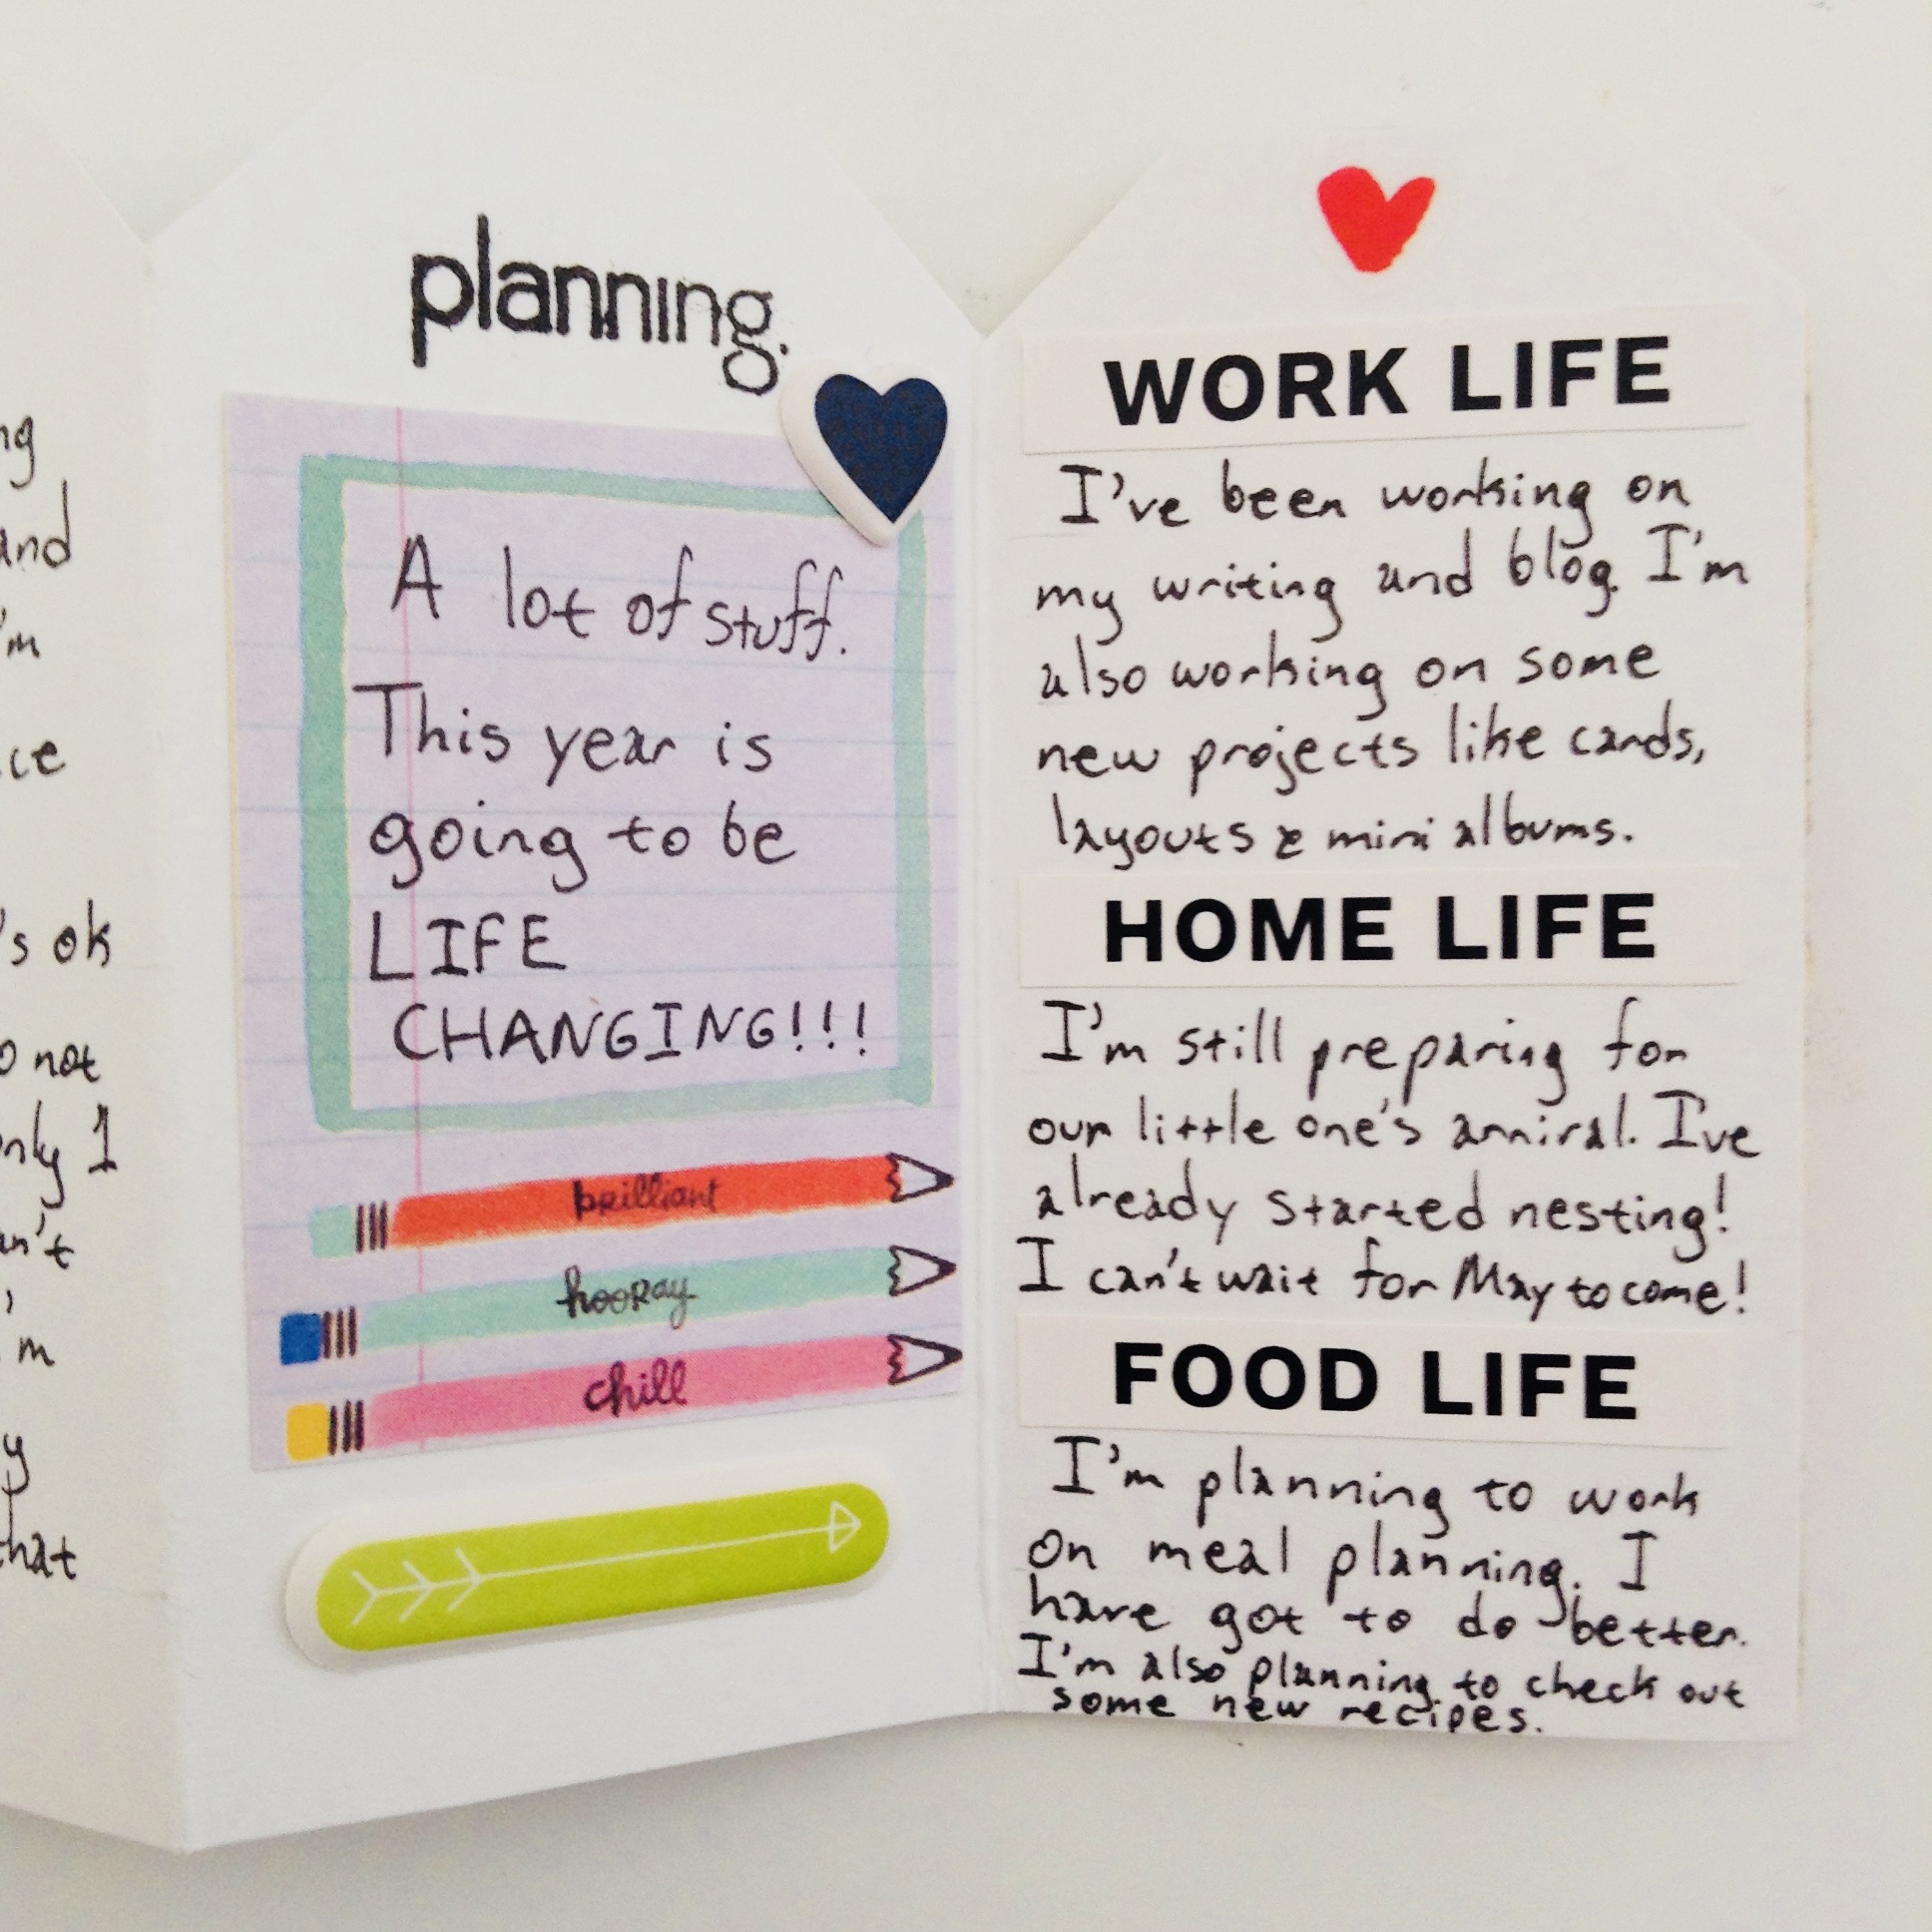 ng
and
'm
ce
's ok
o not
nly 1
an't
'm
y
that
planning.
A lot of stuff.
This year is
going to be
LIFE
CHANGING!!!
brilliant
hooray
chill
WORK LIFE
I've been working on
my writing and blog. I'm
also working on some
new projects like cards,
layouts & mini albums.
HOME LIFE
I'm still preparing for
our little one's arrival. I've
already started nesting!
I can't wait for May to come!
FOOD LIFE
I'm planning to work
on meal planning. I
have got to do better.
I'm also planning to check out
some new recipes.